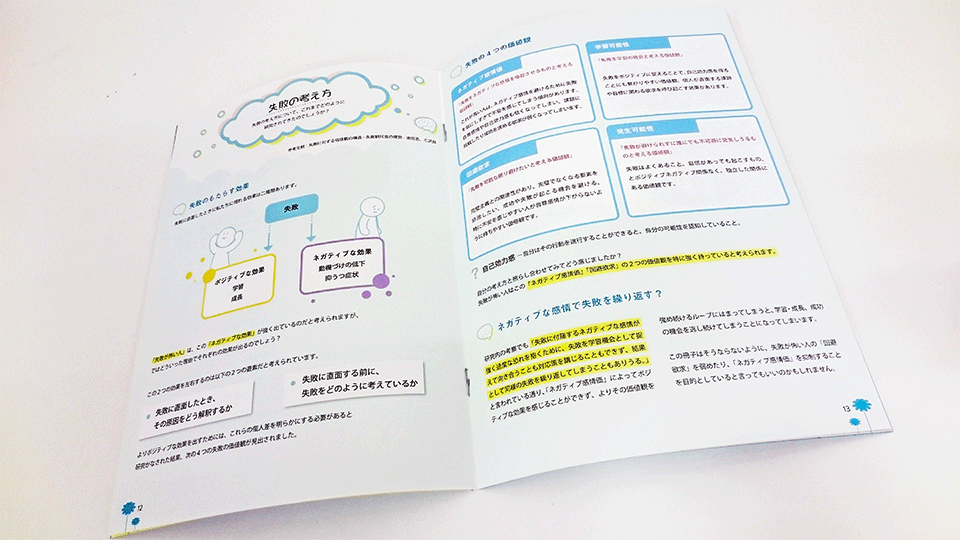 失敗の考え方
失敗の考え方について、これまでどのように
研究されてきたのでしょうか？
失敗のもたらす効果
失敗に直面したときに私たちに現れる効果は二種類あります。
失敗
ポジティブな効果
学習
成長
ネガティブな効果
動機づけの低下
抑うつ症状
「失敗が怖い人」は、この「ネガティブな効果」が強く出ているのだと考えられますが、
ではどういった理由でそれぞれの効果が出るのでしょう？
この2つの効果を左右するのは以下の2つの要素だと考えられています。
失敗に直面したとき、
その原因をどう解釈するか
失敗に直面する前に、
失敗をどのように考えているか
よりポジティブな効果を出すためには、これらの個人差を明らかにする必要があると
研究がなされた結果、次の4つの失敗の価値観が見出されました。
12
失敗の4つの価値観
ネガティブ感情価
「失敗するネガティブな感情を喚起させるものと考える
価値観」
これが高い人は、ネガティブ感情を避けるために失敗
回避欲求
「失敗を可能な限り避けたいと考える価値観」
完璧主義との関連性があり、完璧でなくなる要素を
排除したい、成功や失敗が起こる機会を避ける。
特に不安を感じやすい人が自尊感情が下がらないよ
うに持ちやすい価値観です。
学習可能性
「失敗を学習の機会と考える価値観」
失敗をポジティブに捉えることで、自己効力感を得る
ことにも繋がりやすい価値観。個人が直面する課題
や目標に関わる欲求を呼び起こす効果があります。
発生可能性
「失敗が避けられずに誰にでも不可避に発生しうるも
のと考える価値観」
失敗はよくあること、自信があっても起こすもの、
とポジティブネガティブ関係なく、独立した関係に
ある価値観です。
自己効力感 －自分はその行動を遂行することができると、自分の可能性を認知していること。
自分の考え方と照らし合わせてみてどう感じましたか？
失敗が怖い人はこの「ネガティブ感情価」「回避欲求」の2つの価値観を特に強く持っていると考えられます。
ネガティブな感情で失敗を繰り返す？
研究内の考察でも「失敗に付随するネガティブな感情が
強く過度な恐れを抱くために、失敗を学習機会として捉
えて向き合うことも対応策を講じることもできず、結果
として同様の失敗を繰り返してしまうこともありうる。」
と言われている通り、「ネガティブ感情価」によってポジ
ティブな効果を感じることができず、よりその価値観を
強め続けるループにはまってしまうと、学習・成長、成功
の機会を逃し続けてしまうことになってしまいます。
この冊子はそうならないように、失敗が怖い人の「回避
欲求」を弱めたり、「ネガティブ感情価」を抑制すること
を目的としていると言ってもいいのかもしれません。
13